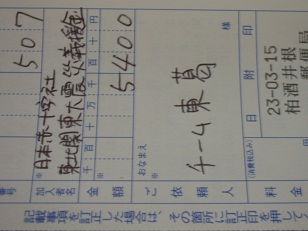 507
日本赤十字社
東北関東大震災義援金
千百十万千百十円
5400
おなまえ
チーム東葛
様
日附印
23-03-15
柏酒井根
郵便局
(消費税込み)
円
番号
加入者名
金額
ご依頼人
料金
記載事項を訂正した場合は、その箇所に訂正印を押して